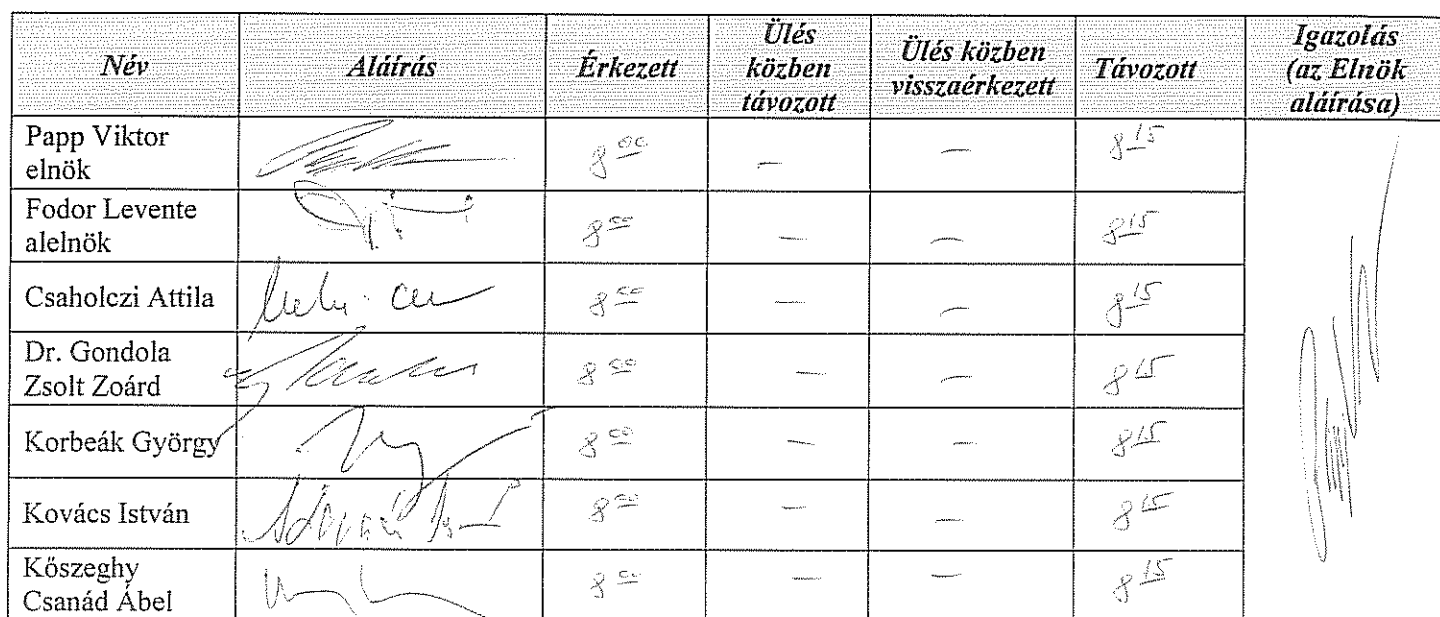 Név Aláírás Érkezett Ülés közben távozott Ülés közben visszaérkezett Távozott Igazolás (az Elnök aláírása)
Papp Viktor elnök 8 00 — — 8 15
Fodor Levente alelnök 8 00 — — 8 15
Csaholczi Attila 8 00 — — 8 15
Dr. Gondola Zsolt Zoárd 8 00 — — 8 15
Korbeák György 8 00 — — 8 15
Kovács István 8 00 — — 8 15
Kőszeghy Csanád Ábel 8 00 — — 8 15